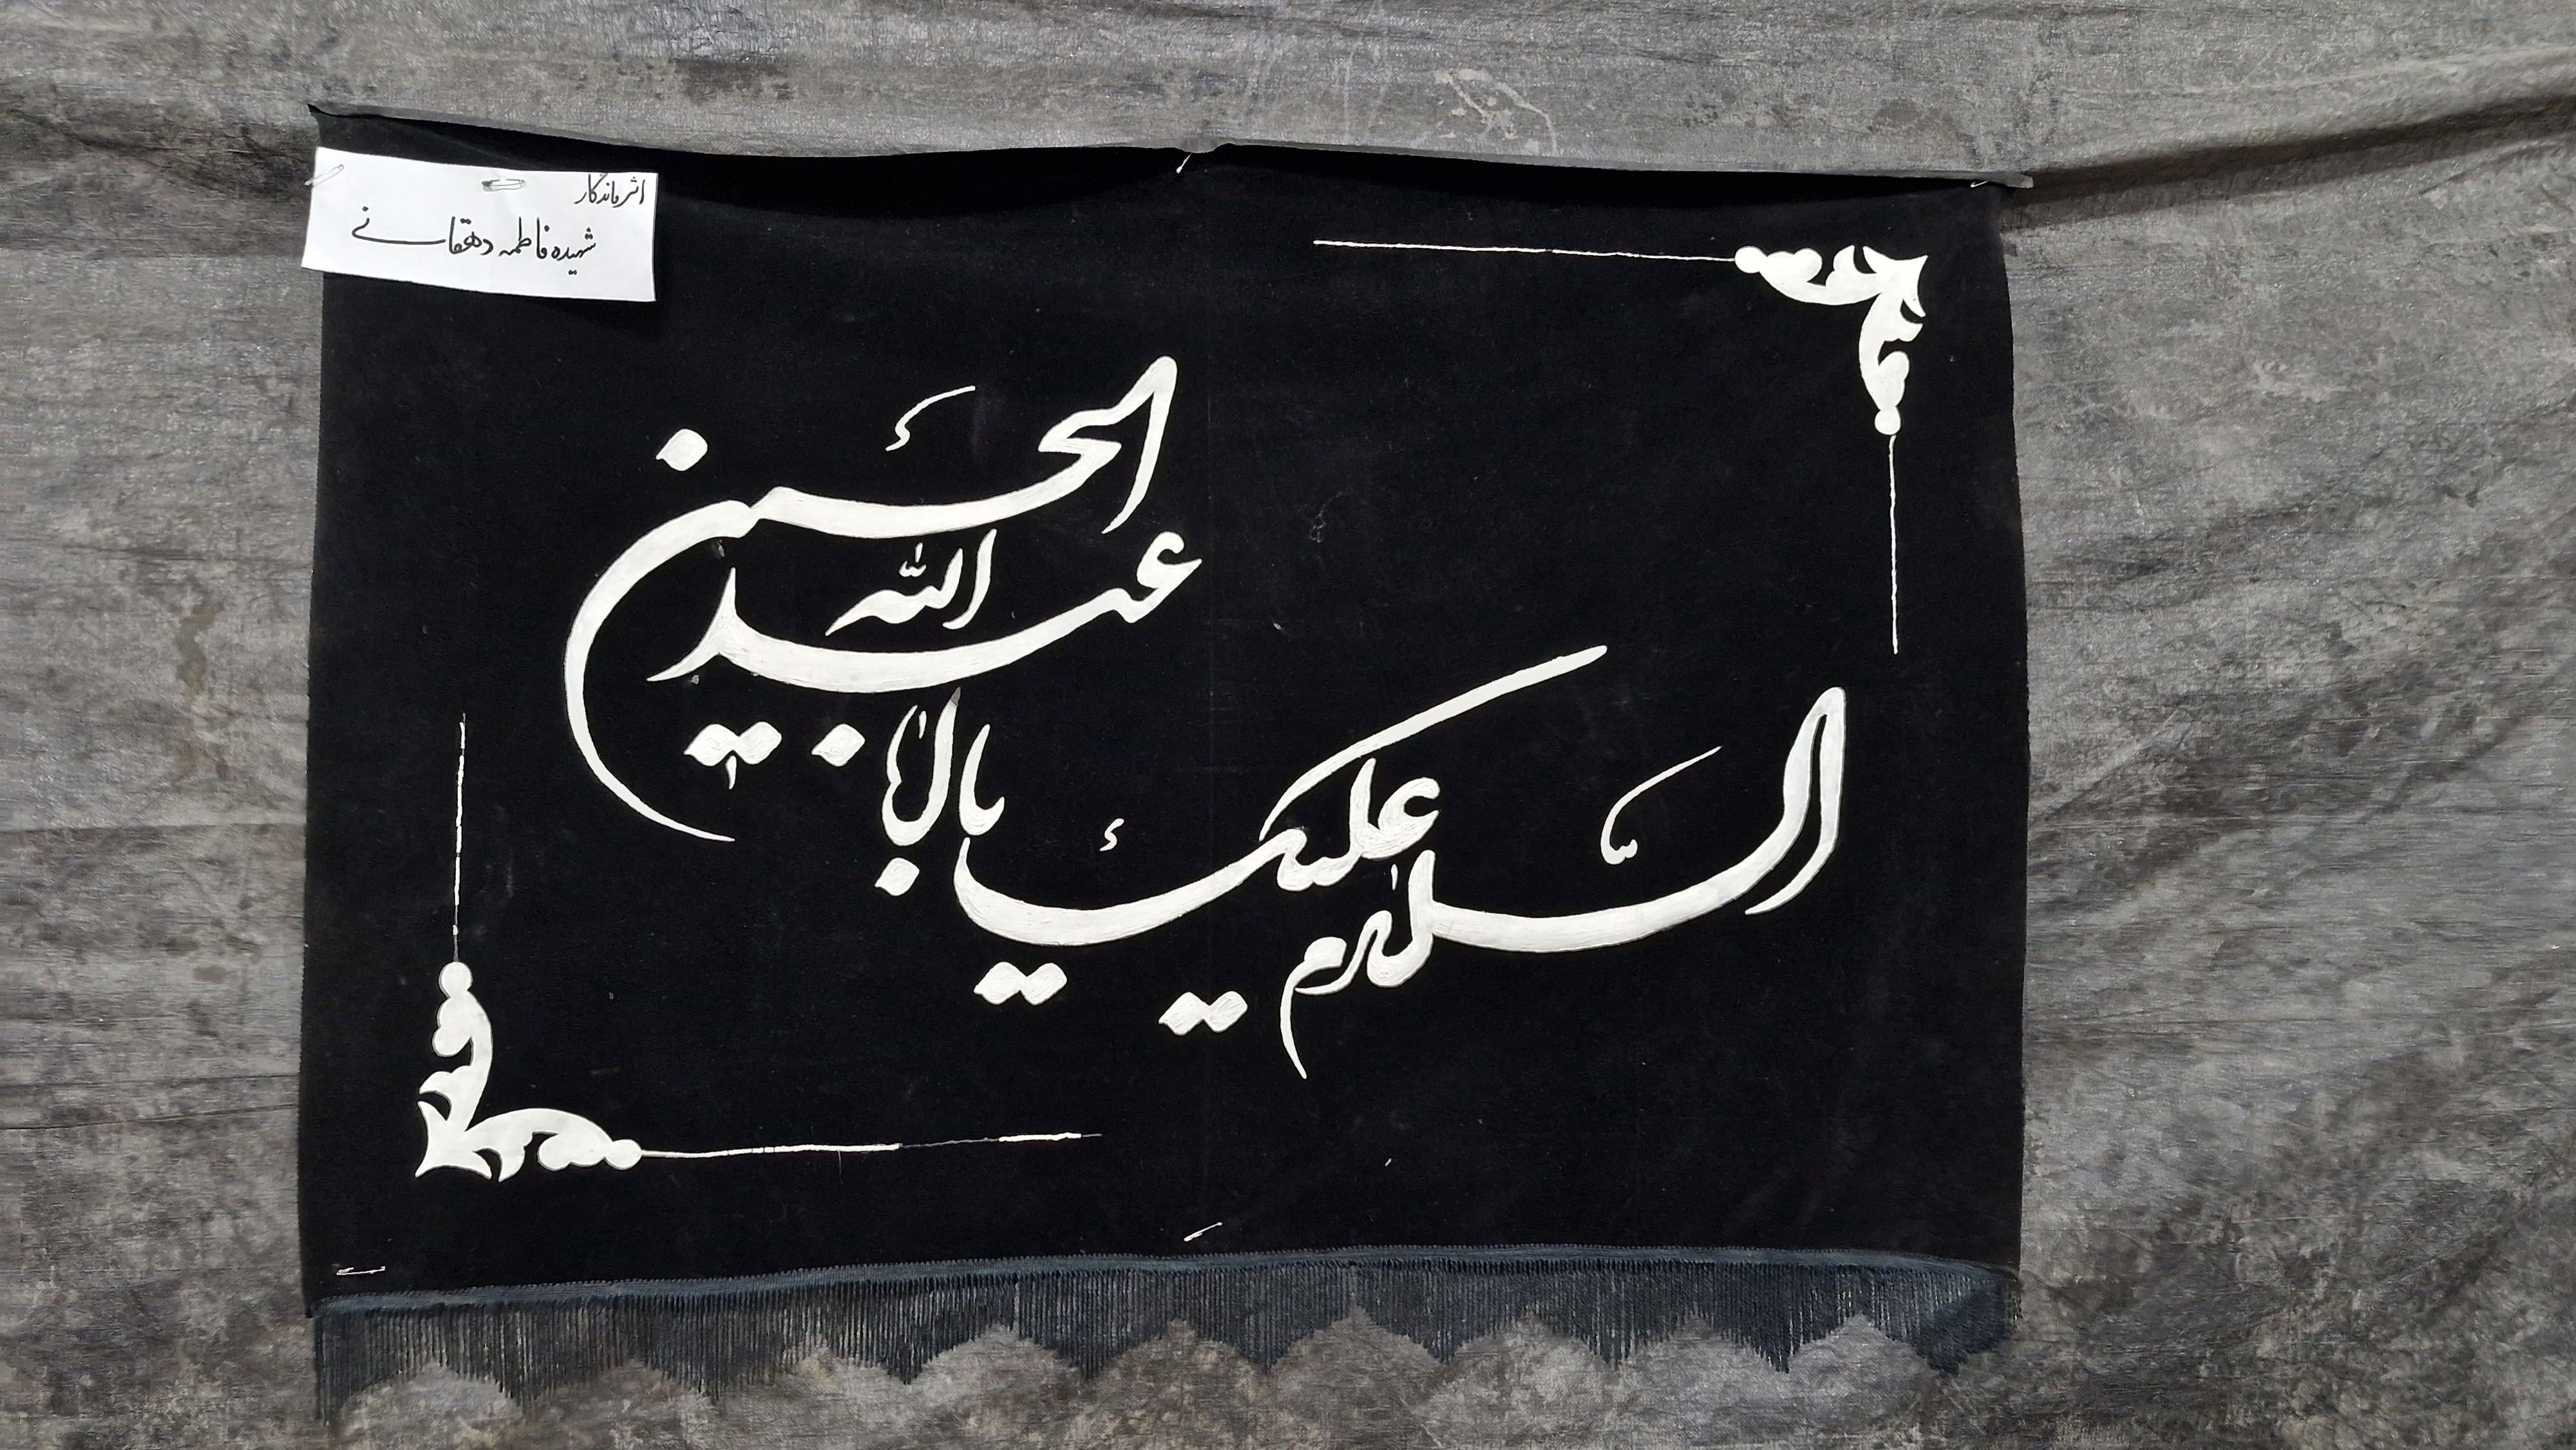 اثر ماندگار
شهیده فاطمه دهقانی
السلام علیک یا ابا عبد الله الحسین